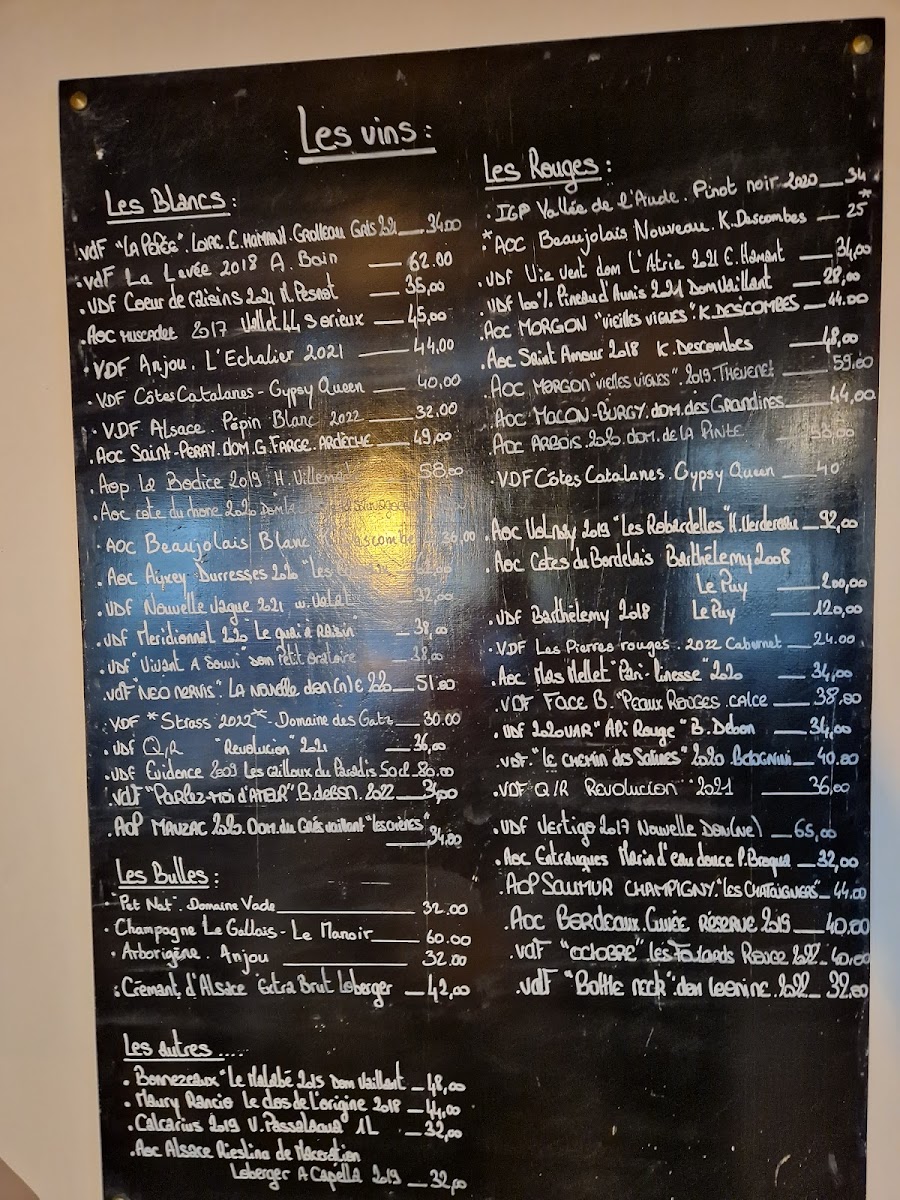 Les vins :
Les Blancs :
. vdF "La Pépée". Loire. E. Hamant. Grolleau Gris 2021 34.00
. vdF La Levée 2018 A. Bain 62.00
. VDF Coeur de raisins 2021 M. Pesnot 36,00
. Aoc muscadet 2017 Vallet 44 Sorieux 45,00
. VDF Anjou. L'Echalier 2021 44.00
. VDF Côtes Catalanes - Gypsy Queen 40,00
. VDF Alsace. Pépin Blanc 2022 32.00
. Aoc Saint-Peray. Dom. G. Farge. Ardèche 49,00
. Aop La Bodice 2019 H. 58,00
. Aoc cote du rhone 2020
. AOC Beaujolais Blanc 36,00
. Aoc Auxey Durresses 2020 "Les
. VDF Nouvelle Vague 2021 32,00
. VDF Meridionnal 220 "Le quai à Raisin" 38,00
. VDF "Vivant A Souvi" Dom Petit Oratoire 38.00
. vdt "Neo Nervis". La Novelle don(n)e 220 51.00
. VDF "Strass 2022" - Domaine des Gatz 30.00
. VDF Q/R "Revolucion" 2021 36,00
. VDF Evidence 2009 Les cailloux du Paradis 50cl 80.00
. vdt "Parlez-moi d'Ateur" B. debon. 2022 34,00
. AOP Mauzac 2020. Dom. du Grès vaillant "les crères"
34.00
Les Bulles :
"Pet Nat". Domaine Vade 32.00
. Champagne Le Gallois - Le Manoir 60.00
. Arborigène. Anjou 32.00
. Crémant d'Alsace Extra Brut Loberger 42,00
Les autres ....
. Bonnezeaux "Le Malabé 2015 Dom Vaillant 48,00
. Maury Rancio le clos de l'origine 2018 44,00
. Calcarius 2019 V. Passalaqua 1L 32,00
. Aoc Alsace Riesling de Macération
Loberger A Capella 2019 32,00
Les Rouges :
. IGP Vallée de l'Aude. Pinot noir 2020 34
* AOC Beaujolais Nouveau. K. Descombes 25*
. VDF Vie Vent dom L'Atrie 2021 E. Hamant 34,00
. VDF 100% Pineau d'Aunis 2021 Dom Vaillant 28,00
Aoc MORGON "vieilles vignes". K. DESCOMBES 44.00
. Aoc Saint Amour 2018 K. Descombes 48,00
Aoc MORGON "vielles vignes". 2019. Thevenet 59.00
Aoc MACON-BURGY. dom. des Grandines 44,00
Aoc ARBOIS. 2020. dom. de la Pinte
. VDF Côtes Catalanes. Gypsy Queen 40
. Aoc Volnay 2019 "Les Robardelles" 92,00
. Aoc Cotes du Bordelais Barthélemy 2008
Le Puy 200,00
. VDF Barthélemy 2018 Le Puy 120,00
. VDF Les Pierres rouges. 2022 Cabernet 24.00
. Aoc Mas Mellet "Pari-Linesse" 2020 34,00
. VDF Face B. "Peaux Rouges. calce 38,00
. VDF 2220VAR "Api Rouge" B. Debon 34,00
. VDT. "Le chemin des Salines" 2020 Bolognini 40.00
. VDF Q/R Revolucion 2021 36,00
. VDF Vertigo 2017 Nouvelle Don(ne) 65,00
. Aoc Entraygues Marin d'eau douce P. Broqua 32,00
. AOP SAUMUR CHAMPIGNY. "Les Chataigniers" 44.00
. AOC BORDEAUX. Cuvée RESERVE 2019 40.00
. vdt "octobre" les Foulards Rouge 2022 40.00
. vdt "Bottle neck" dom leonine. 2022 32.00